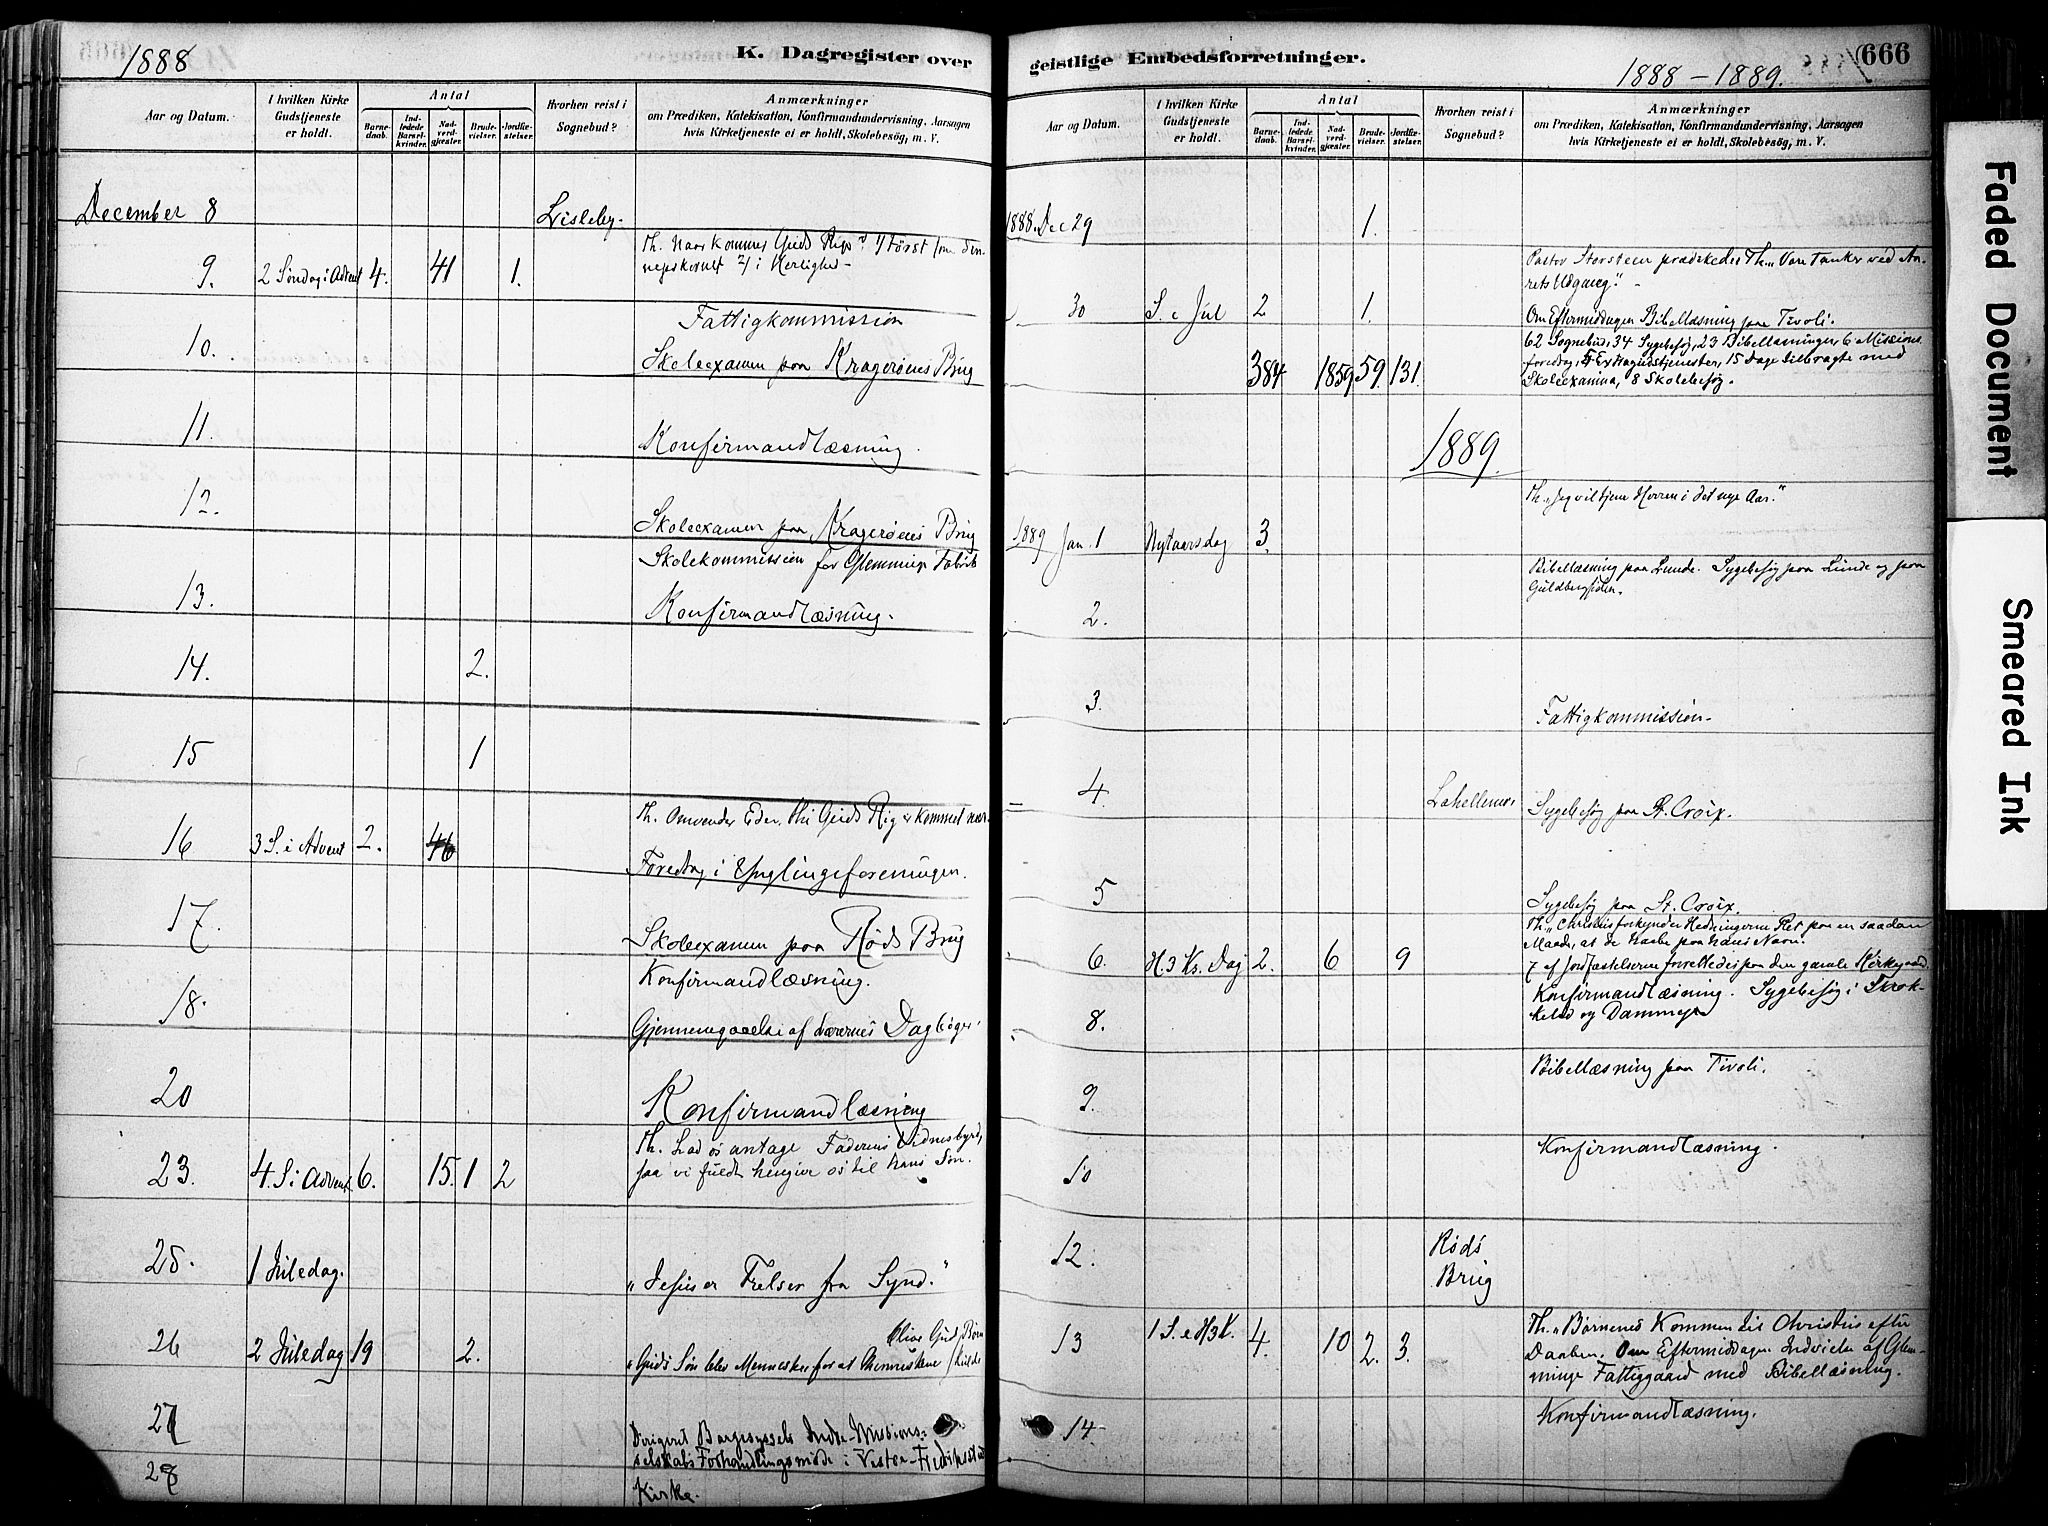 1888
K. Dagregister over
Aar og Datum.
I hvilken Kirke Gudstjeneste er holdt.
Antal
Barnedaab.
Indledede Barselkvinder.
Nadverdgjæster.
Brudevielser.
Jordfæstelser.
Hvorhen reist i Sognebud?
Anmærkninger
om Prædiken, Katekisation, Konfirmandundervisning, Aarsagen
hvis Kirketjeneste ei er holdt, Skolebesög, m. V.
December 8 Lisleby.
Th. Naar kommer Guds Rige? 1/ først
2/ i Herlighed
9. 2 Søndag i Advent 4. 41 1.
Fattigkommission
10. Skoleexamen paa Kragerøenes Brug
11. Konfirmandlæsning.
12. Skoleexamen paa Kragerøenes Brug
Skolekommission for Glemminge Fabrik
13. Konfirmandlæsning.
14. 2.
15 1
Th. Omvender Eder, thi Guds Rig er kommet nær.
16 3 S. i Advent 2. 46
Foredrag i Ynglingeforeningen.
17. Skoleexamen paa Røds Brug
Konfirmandlæsning.
18. Gjennemgaaelse af Lærernes Dagbøger.
20 Konfirmandlæsning
Th. Lad os antage Faderens Vidnesbyrd,
saa vi fuldt hengive os til hans Søn.
23. 4. S. i Advent 6. 15. 1 2
25. 1 Juledag. "Jesus er Frelser fra Synd."
26 2 Juledag 19 2. "Guds Søn blev Menneske for at Menneskene
blive Guds Børn
27 Dirigeret Borgesyssels Indre-Missions-
selskabs Forhandlingsmøde i Vestre-Fredriksstad
28 Kirke.
geistlige Embedsforretninger.
666
1888 - 1889.
Aar og Datum.
I hvilken Kirke Gudstjeneste er holdt.
Antal
Barnedaab.
Indledede Barselkvinder.
Nadverdgjæster.
Brudevielser.
Jordfæstelser.
Hvorhen reist i Sognebud?
Anmærkninger
om Prædiken, Katekisation, Konfirmandundervisning, Aarsagen
hvis Kirketjeneste ei er holdt, Skolebesög, m. V.
1888. Dec 29 1.
Pastor Storsteen prædikede Th. "Vore Tanker ved Aa-
rets Udgang."
30 S. e Jul 2 1. Om Eftermiddagen Bibellæsning paa Tivoli.
62 Sognebud, 34 Sygebesøg, 23 Bibellæsninger, 6 Missions
foredrag, Extragudstjenester, 15 Dage tilbragte med
384 1859 59 131 Skoleexamina, 8 Skolebesøg.
1889.
Th. "Jeg vil tjene Herren i det nye Aar."
1889 Jan. 1 Nytaarsdag 3.
Bibellæsning paa Lunde. Sygebesøg paa Lunde og paa
2.
3. Fattigkommission.
4. Sygebesøg paa St. Croix.
5 Sygebesøg paa St. Croix.
Th. "Christus forkynder Hedningerne Ret paa en saadan
Maade, at de haabe paa hans Navn.
6. H. 3 K. Dag 2. 6 9 7 af Jordfæstelserne forrettedes paa den gamle Kirkegaard.
Konfirmandlæsning. Sygebesøg i Trok-
8. kelad og Dammyr
Bibellæsning paa Tivoli.
9.
10 Konfirmandlæsning.
12. Røds
Brug
13 1 S. e H3K. 4. 10 2. 3. Th. "Børnenes Kommen til Christus efter
Daaben. Om Eftermiddagen Indvielse af Glem-
minge Fattiggaard med Bibellæsning.
14 Konfirmandlæsning.
Faded Document
Smeared Ink